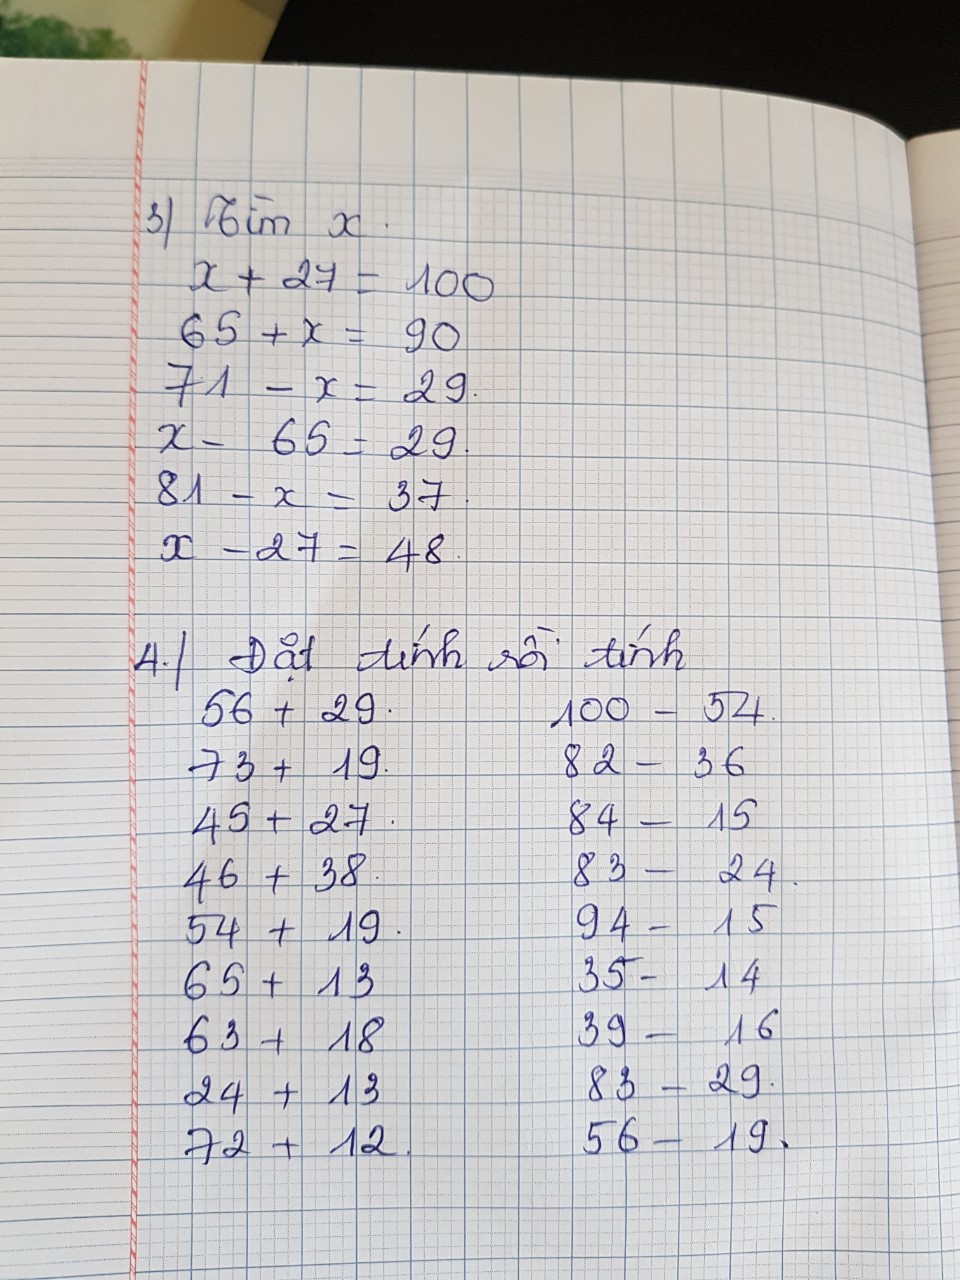 3) Tìm x.
x + 27 = 100
65 + x = 90
71 - x = 29.
x - 65 = 29.
81 - x = 37.
x - 27 = 48.
4.) Đặt tính rồi tính
56 + 29. 100 - 54.
73 + 19. 82 - 36
45 + 27. 84 - 15
46 + 38. 83 - 24.
54 + 19. 94 - 15
65 + 13 35 - 14
63 + 18 39 - 16
24 + 13 83 - 29.
72 + 12. 56 - 19.